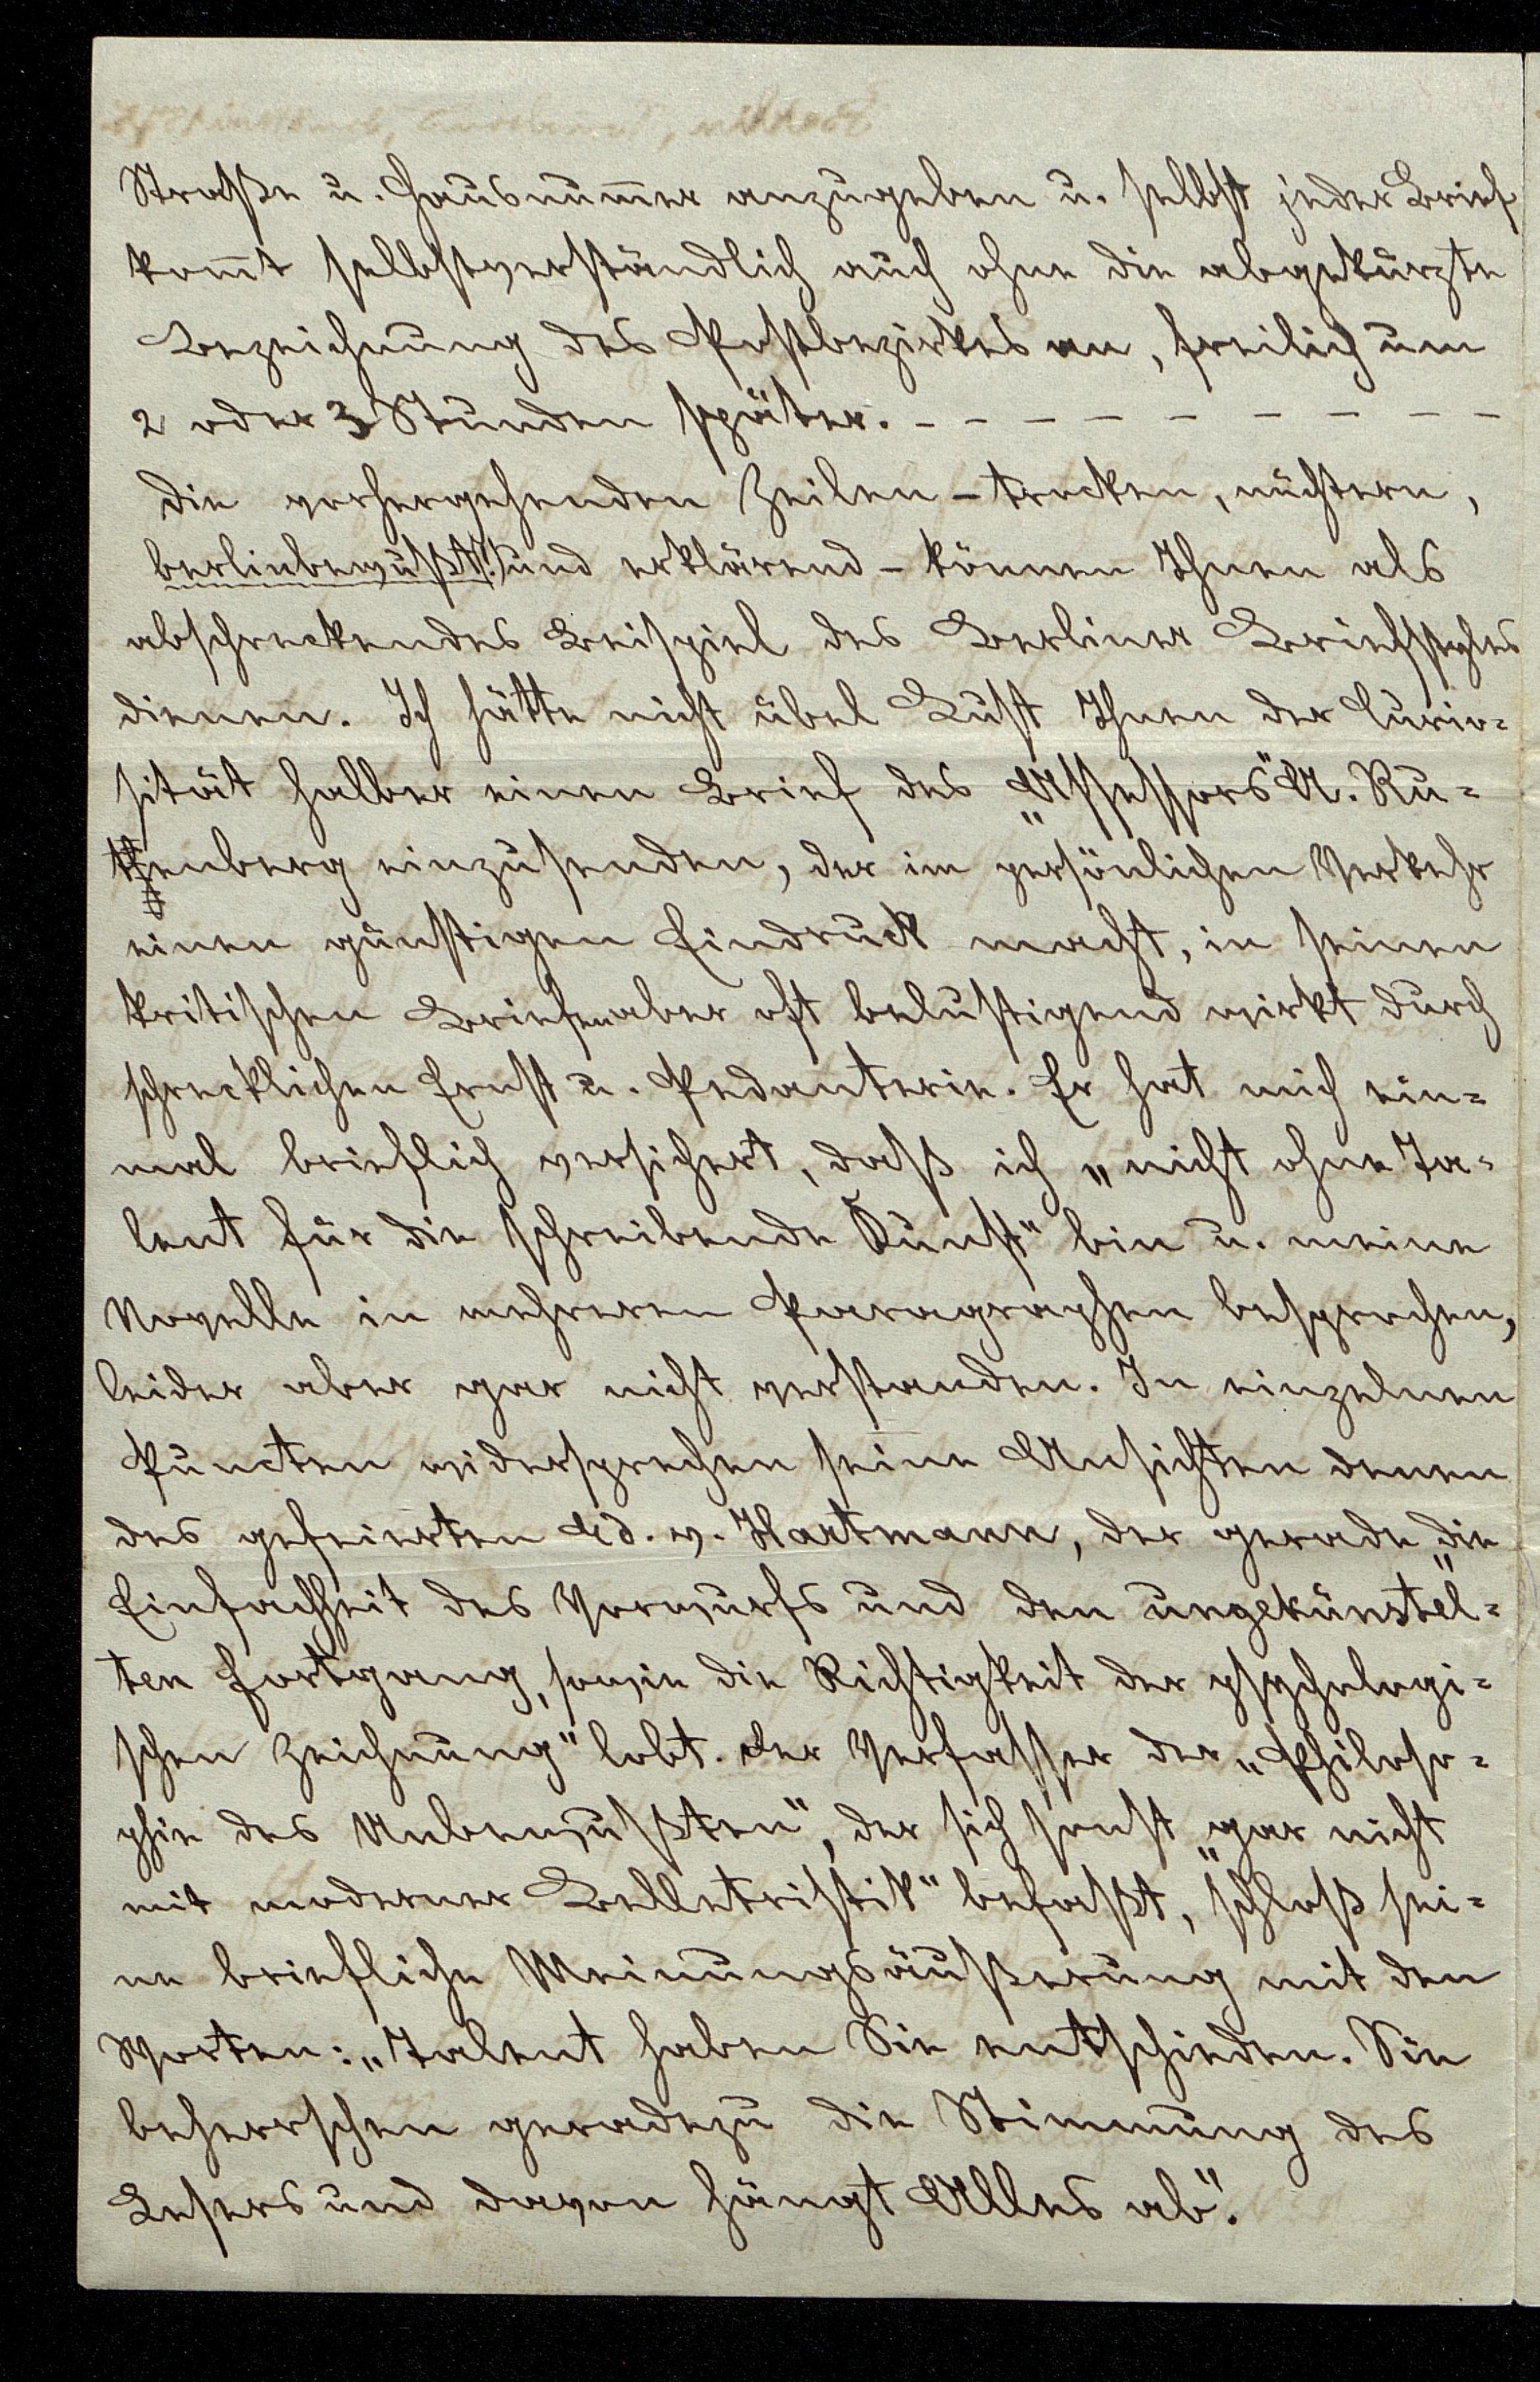 Straße u. Hausnum̄er anzugeben u. selbst jeder Brief
kom̄t selbstverständlich auch ohne die abgekürzte
Bezeichnung des Postbezirkes an, freilich um
2 oder 3 Stunden später. – – – – – – – – –
Die vorhergehenden Zeilen – trocken, nüchtern,
berlinbewußt(!) und erklärend – können Ihnen als
abschreckendes Beispiel des Berliner Briefstyles
dienen. Ich hätte nicht übel Lust Ihnen der Curio=
sität halber einen Brief des „Assessors" A. Ru=
tenberg einzusenden, der im persönlichen Verkehr
einen günstigen Eindruck macht, in seinen
kritischen Briefen aber oft belustigend wirkt durch
schrecklichen Ernst u. Pedanterie. Er hat mich ein=
mal brieflich versichert, daß ich „nicht ohne Ta=
lent für die schreibende Kunst" bin u. meine
Novelle in mehreren Paragraphen besprochen,
leider aber gar nicht verstanden. In einzelnen
Puncten widersprechen seine Ansichten denen
des gefeierten Ed. v. Hartmann, der gerade „die
Einfachheit des Vorwurfs und den ungekünstel=
ten Fortgang, sowie die Richtigkeit der psychologi=
schen Zeichnung" lobt. Der Verfasser der „Philoso=
phie des Unbewußten", der sich sonst „gar nicht
mit moderner Belletristik" befaßt, schloß sei=
ne briefliche Meinungsäußerung mit den
Worten: „Talent haben Sie entschieden. Sie
beherrschen geradezu die Stimmung des
Lesers und davon hängt Alles ab".